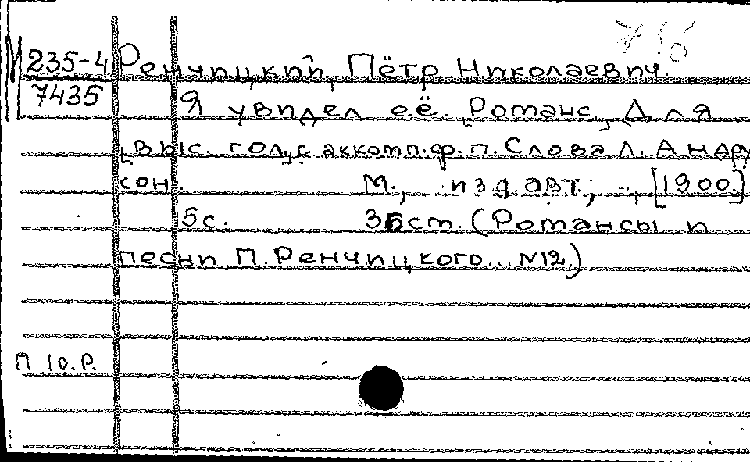 М 235-4 Ренчицкий, Пётр Николаевич.
7435 Я увидел её. Романс. Для
выс. гол. с аккомп. ф.-п. Слова Л. Андр
сон. М., изд. авт., [1900]
5с. 35 см. (Романсы и
песни П. Ренчицкого.. N12)
П 10.Р.